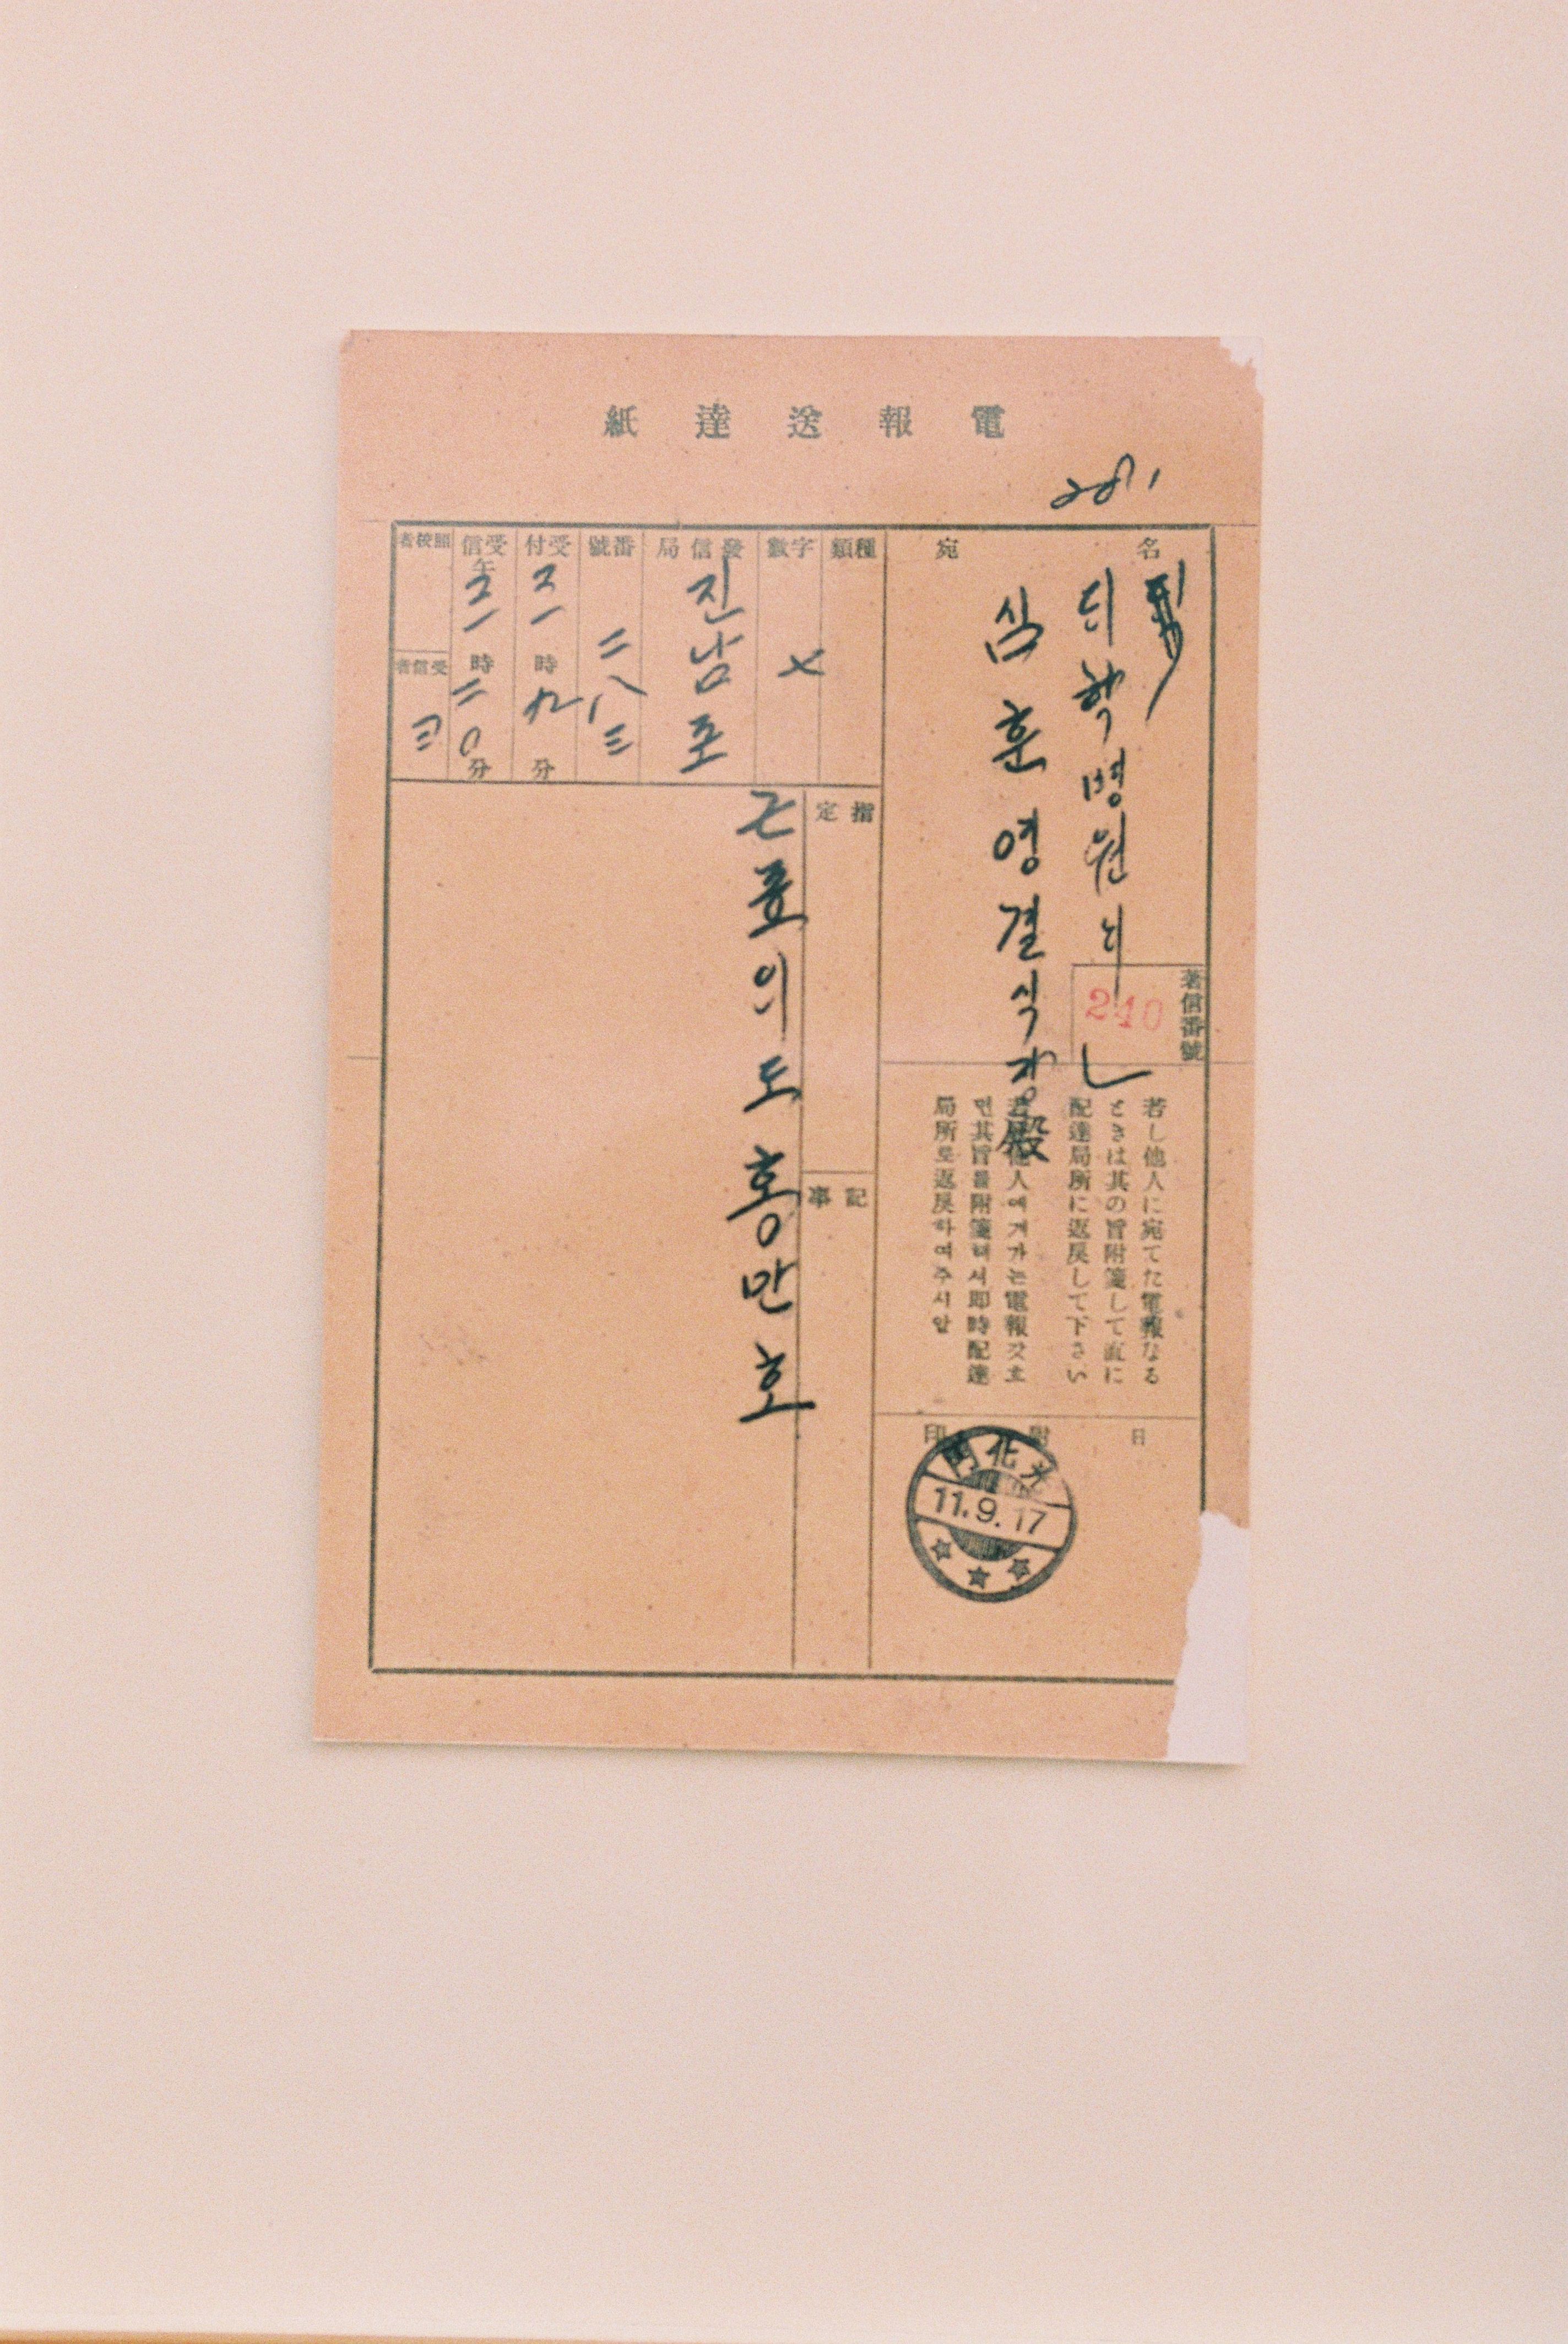 電報送達紙
宛名
듸학병원늬
심훈영결식장殿
著信番號
240
若し他人に宛てた電報なる
ときは其の旨附箋して直に
配達局所に返戻して下さい
人에게가는電報갓흐
면其旨를附箋해서即時配達
局所로返戻하여주시압
日附印
光化門
11.9.17
種類
字數
發信局
진남포
番號
二八三
受付
時
九
分
受信
午
時
二〇
分
照校者
受信者
指定
記事
근표의도홍만호